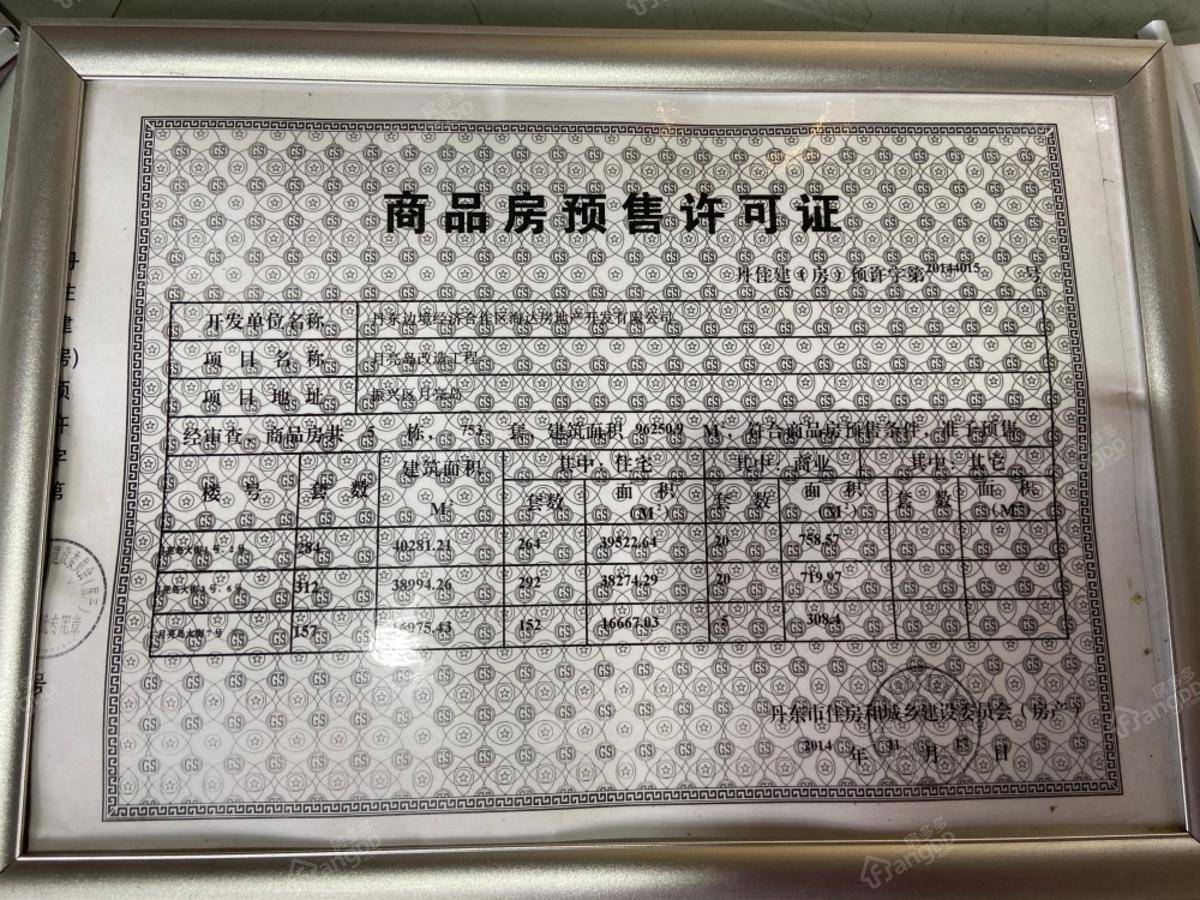 商品房预售许可证
丹住建（房）预许字第20144015号
开发单位名称 丹东边境经济合作区海达房地产开发有限公司
项目名称 月亮岛改造工程
项目地址 振兴区月亮岛
经审查，商品房共 5 栋，753 套 建筑面积 96250.9 M²，符合商品房预售条件，准予预售
楼号 套数 建筑面积 M² 其中：住宅 其中：商业 其中：其它
套数 面积（M²） 套数 面积（M²） 套数 面积（M²）
284 40281.21 264 39522.64 20 758.57
312 38994.26 292 38274.29 20 719.97
月亮岛大街7号 157 16975.43 152 16667.03 5 308.4
丹东市住房和城乡建设委员会（房产）
2014年11月 日
丹
住
建
房)
预
许
字
第
号